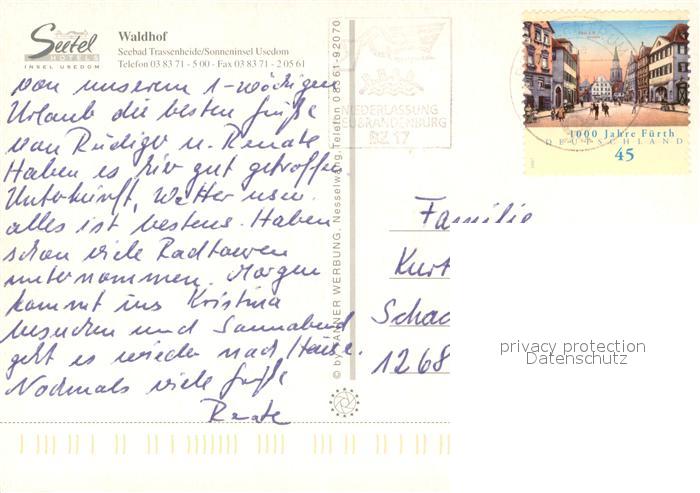 Seetel
HOTELS
INSEL USEDOM
Waldhof
Seebad Trassenheide/Sonneninsel Usedom
Telefon 03 83 71 - 5 00 - Fax 03 83 71 - 2 05 61
von unserem 1-wöchigen
Urlaub die besten Grüße
von Rüdiger u. Renate
Haben es hier gut getroffen
Unterkunft, Wetter usw.
alles ist bestens. Haben
schon viele Radtouren
unternommen. Morgen
kommt uns Kristina
besuchen und Sonnabend
geht es wieder nach Hause.
Nochmals viele Grüße
Renate
WERBUNG, Nesselwang, Telefon 08361-92070
NIEDERLASSUNG
NEUBRANDENBURG
BZ 17
1000 Jahre Fürth
DEUTSCHLAND
45
Familie
Kurt
Schac
1268
privacy protection
Datenschutz